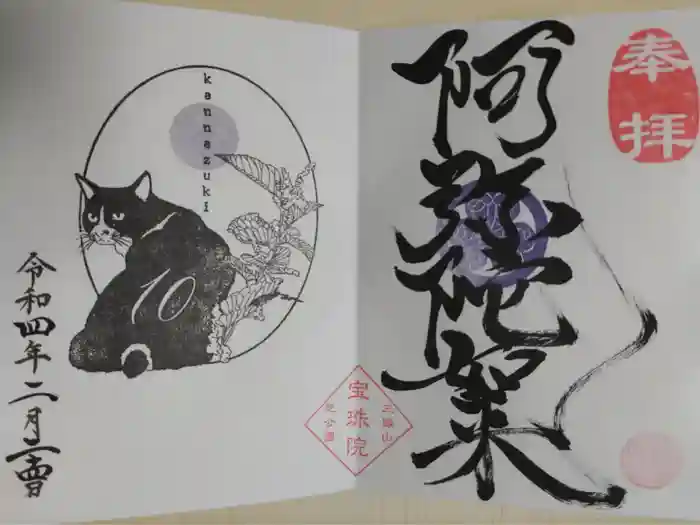 奉拝
阿弥陀如来
三縁山
宝珠院
芝公園
kannazuki
10
令和四年二月